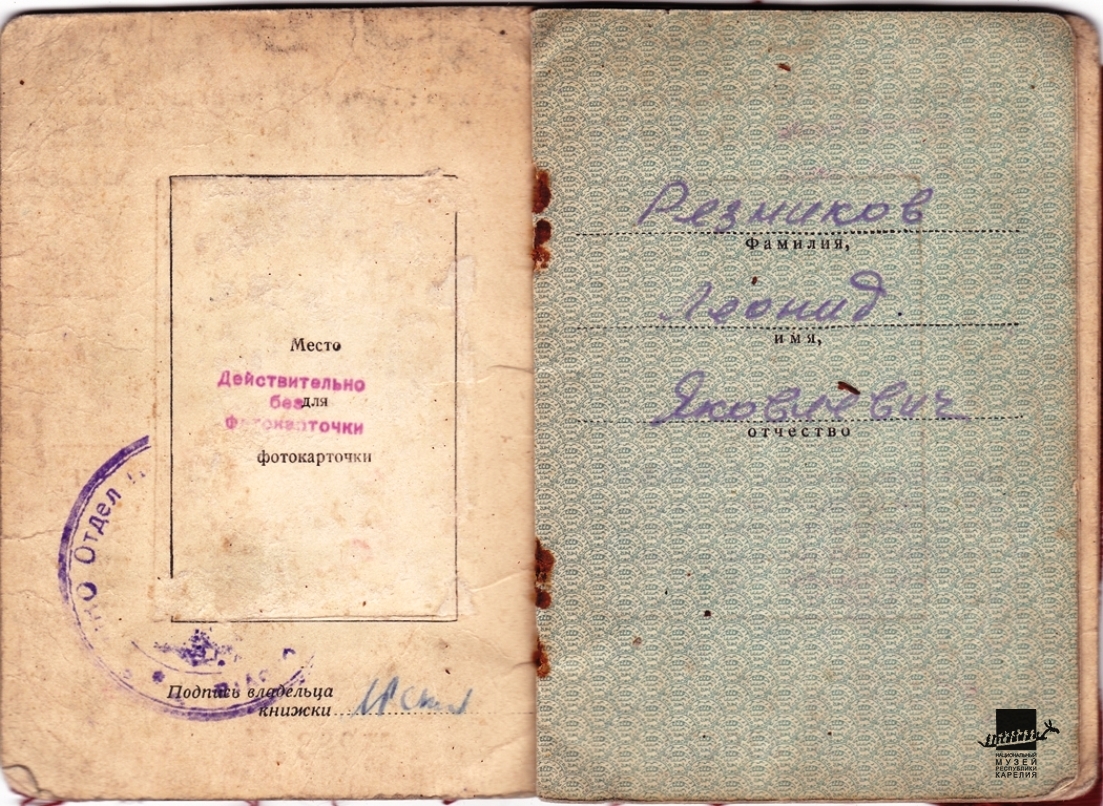 Место
Действительно
без
для
Фотокарточки
фотокарточки
Отдел
Подпись владельца
книжки
Резников
Фамилия,
Леонид
имя,
Яковлевич
отчество
НАЦИОНАЛЬНЫЙ
МУЗЕЙ
РЕСПУБЛИКИ
КАРЕЛИЯ